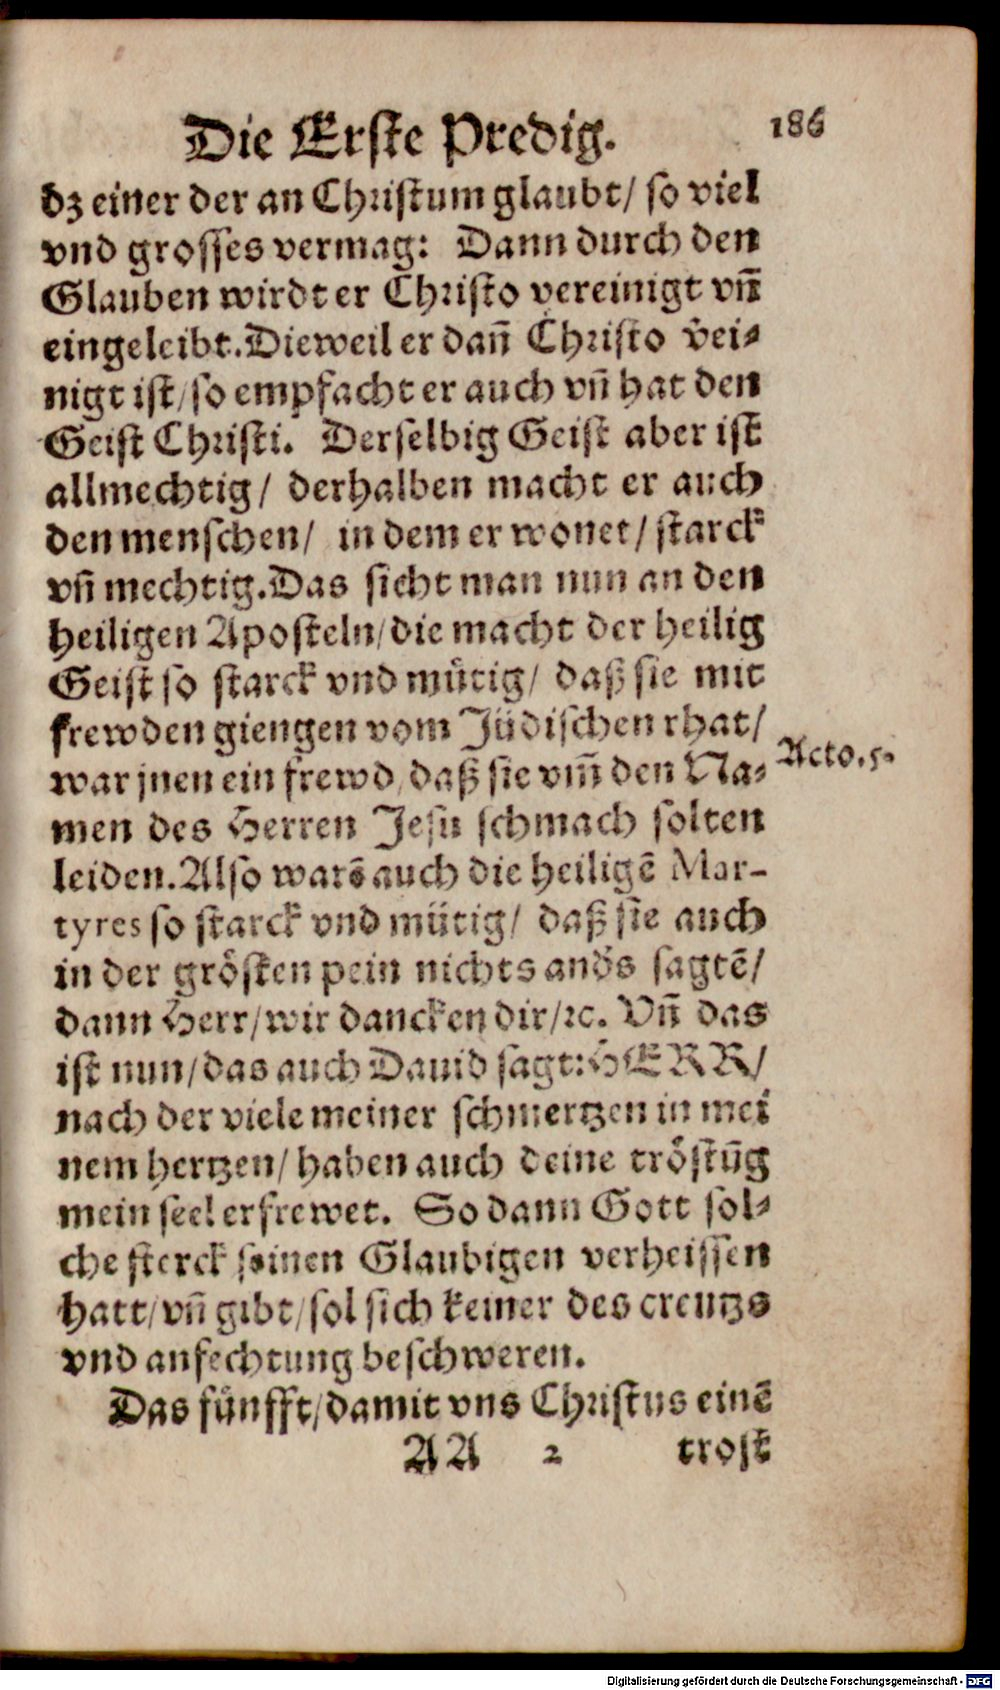 Die Erste Predig.
186
dz einer der an Christum glaubt/ so viel
vnd grosses vermag: Dann durch den
Glauben wirdt er Christo vereinigt vñ
eingeleibt. Dieweil er dañ Christo v̈ei-
nigt ist/ so empfacht er auch vñ hat den
Geist Christi. Derselbig Geist aber ist
allmechtig/ derhalben macht er auch
den menschen/ in dem er wonet/ starck
vñ mechtig. Das sicht man nun an den
heiligen Aposteln/ die macht der heilig
Geist so starck vnd mütig/ daß sie mit
frewden giengen vom Jüdischen rhat/
war jnen ein frewd/ daß sie vm̃ den Na-
Acto. 5.
men des Herren Jesu schmach solten
leiden. Also warē auch die heiligē Mar-
tyres so starck vnd mütig/ daß sie auch
in der grösten pein nichts anders sagtē/
dann Herr/ wir dancken dir/ ꝛc. Vñ das
ist nun/ das auch Dauid sagt: HERR/
nach der viele meiner schmertzen in mei
nem hertzen/ haben auch deine tröstūg
mein seel erfrewet. So dann Gott sol-
che sterck seinen Glaubigen verheissen
hatt/ vñ gibt/ sol sich keiner des creutzs
vnd anfechtung beschweren.
Das fünfft/ damit vns Christus einē
AA 2 trost
Digitalisierung gefördert durch die Deutsche Forschungsgemeinschaft - DFG